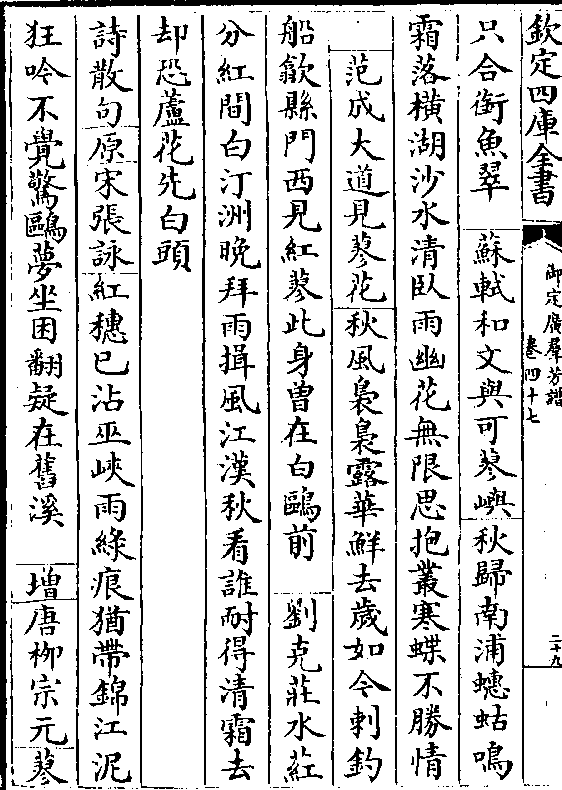 欽定四庫全書
御定廣羣芳譜
卷四十七
二十九
只合銜魚翠　蘇軾和文與可蓼嶼秋歸南浦蟪蛄鳴
霜落橫湖沙水清臥雨幽花無限思抱叢寒蝶不勝情
范成大道見蓼花秋風裊裊露華鮮去歲如今刺釣
船歙縣門西見紅蓼此身曽在白鷗前　劉克莊水葒
分紅間白汀洲晚拜雨揖風江漢秋看誰耐得清霜去
却恐蘆花先白頭
詩散句原宋張詠紅穗已沾巫峽雨綠痕猶帶錦江泥
狂吟不覺驚鷗夢坐困翻疑在舊溪　增唐栁宗元蓼